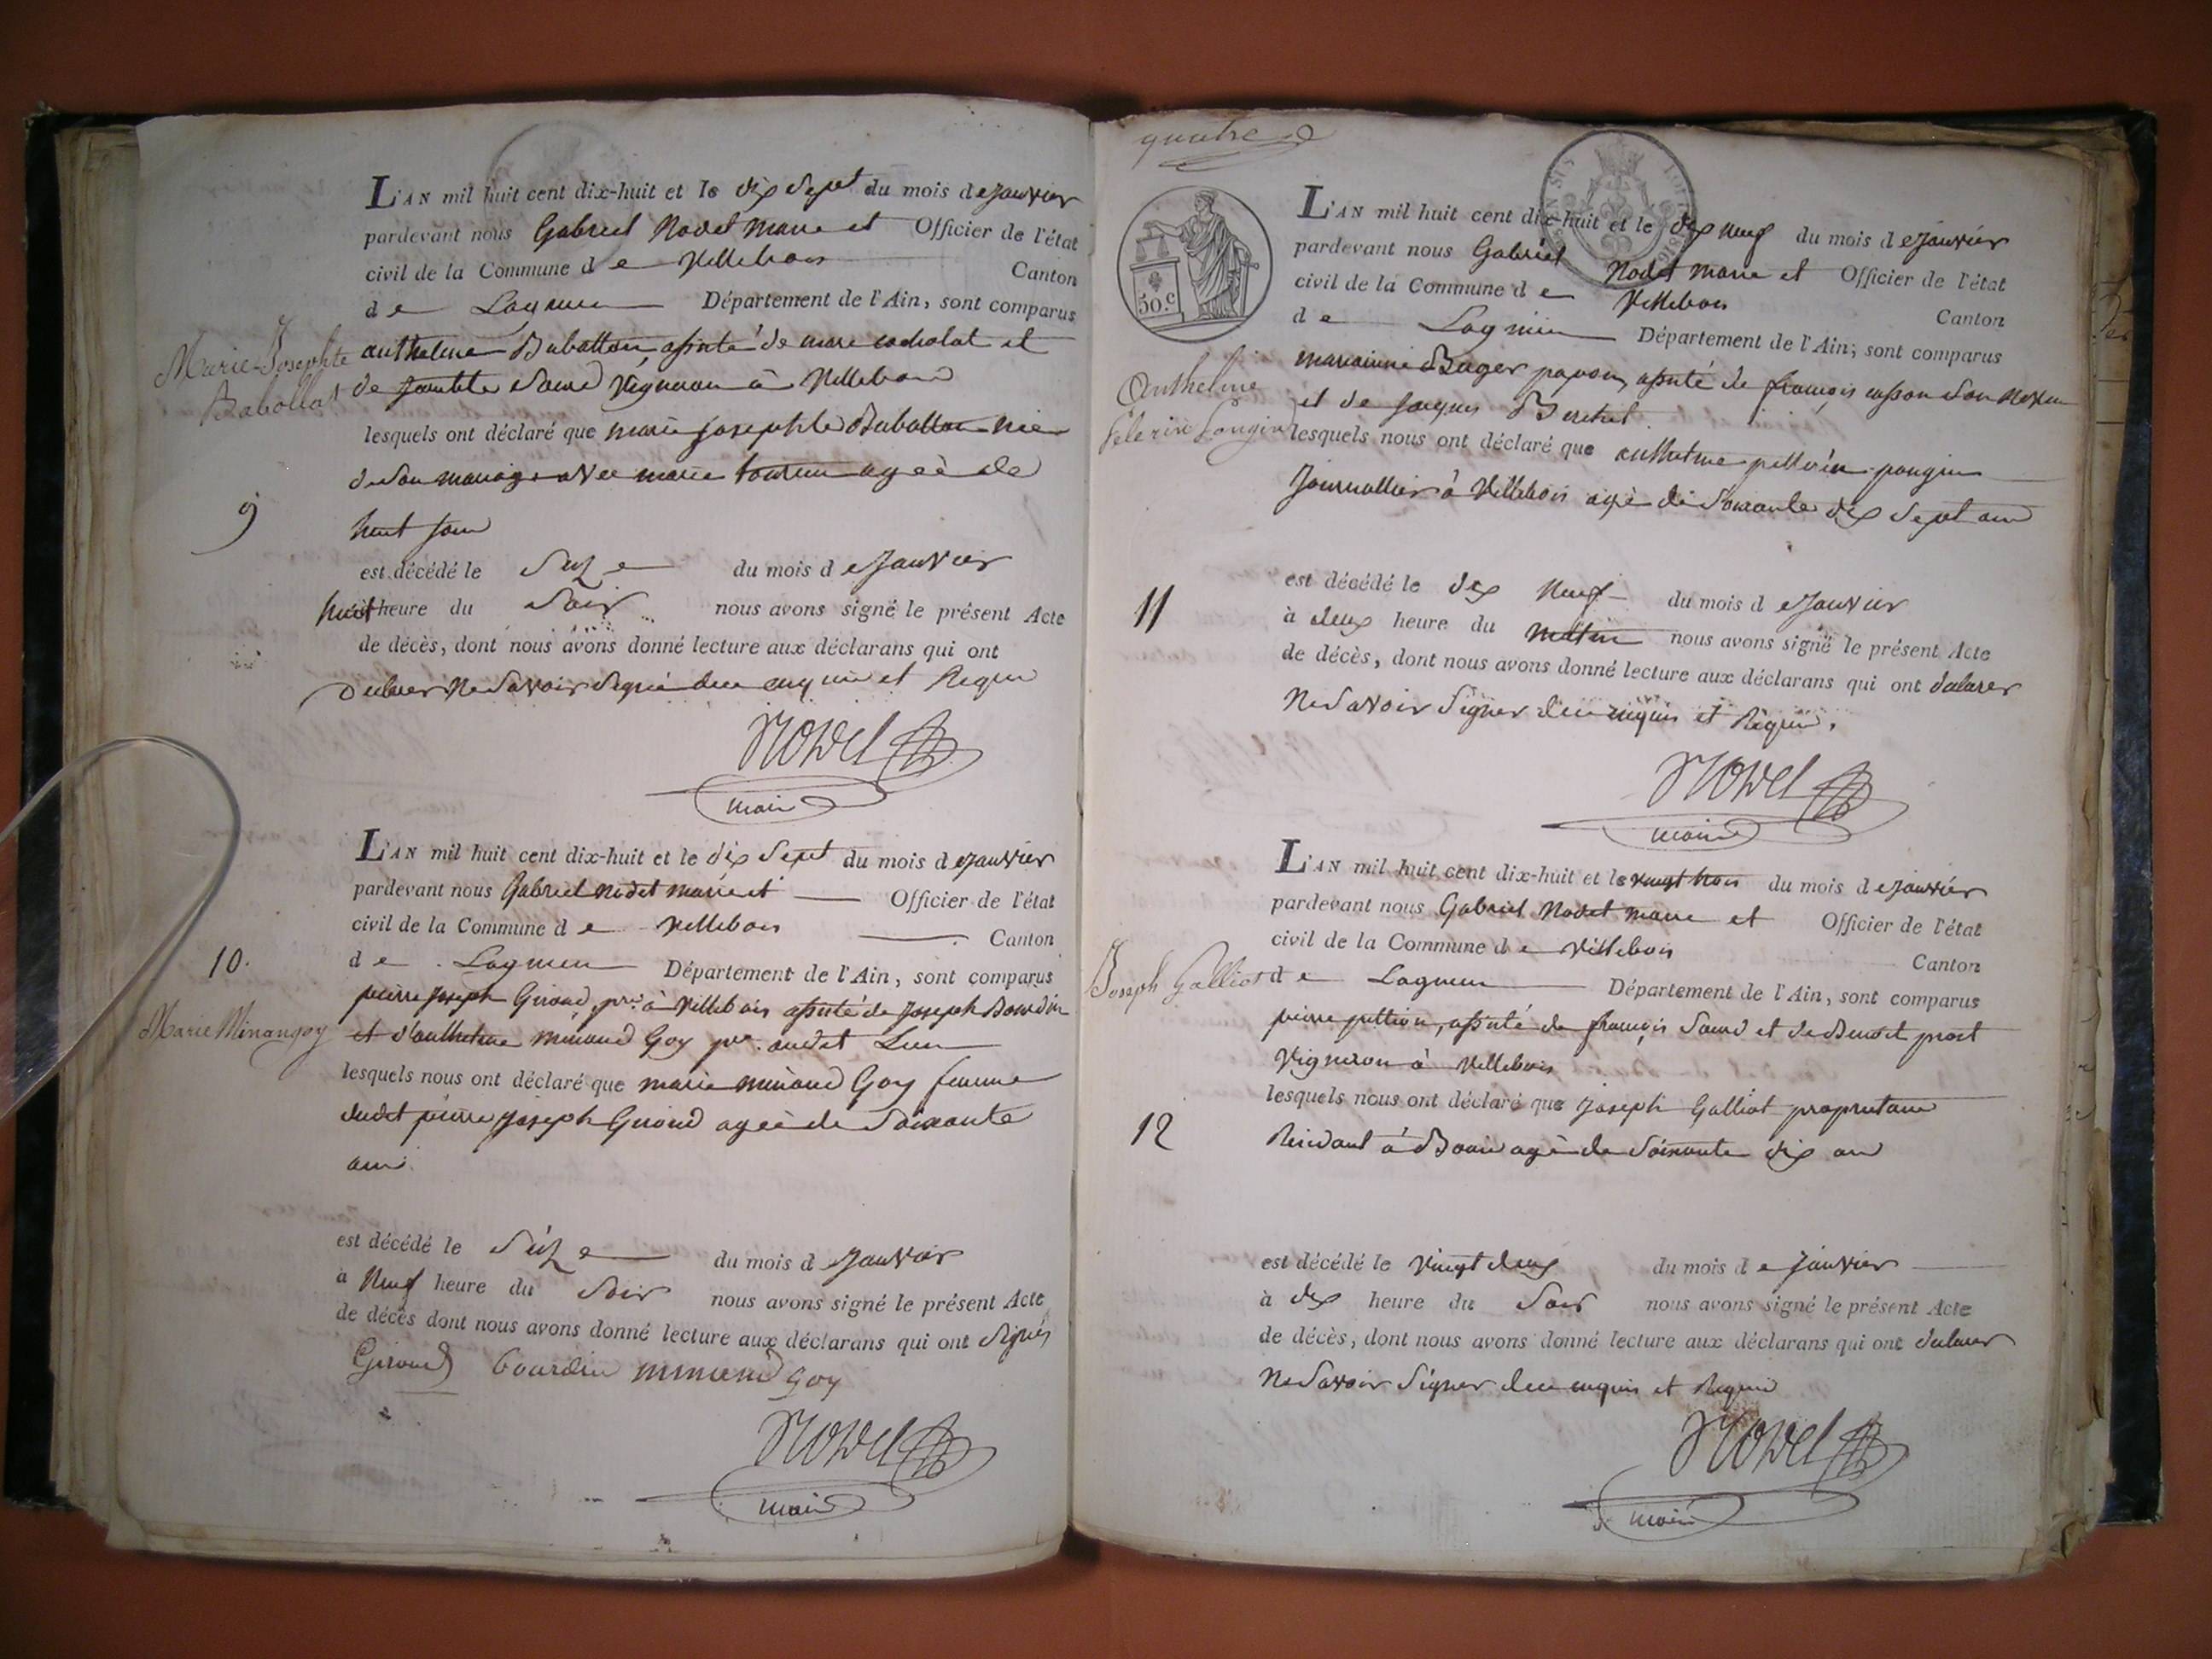 L'AN mil huit cent dix-huit et le dix Sept du mois de Janvier
pardevant nous Gabriel Nodet maire et Officier de l'état
civil de la Commune de Villebois Canton
de Lagnieu Département de l'Ain, sont comparus
anthelme Babollat assisté de marc
et de Saud Vigneron à Villebois
lesquels ont déclaré que marie josephte Babollat née
de Son mariage avec marie agée de
huit jour
est décédé le Seize du mois de Janvier
huit heure du Soir nous avons signé le présent Acte
de décès, dont nous avons donné lecture aux déclarans qui ont
declarer Ne Savoir Signé de ce enquis et Requis
Nodet
maire
Marie-Josephte
Babollat
9
L'AN mil huit cent dix-huit et le dix Sept du mois de Janvier
pardevant nous Gabriel Nodet maire et Officier de l'état
civil de la Commune de Villebois Canton
de Lagnieu Département de l'Ain, sont comparus
pierre Joseph Giroud, pre à Villebois assisté de Joseph Bourdin
et d'anthelme minand Goy pre audit Lieu
lesquels nous ont déclaré que marie minand Goy femme
dudit pierre Joseph Giroud agée de Soixante
ans
est décédé le Seize du mois de Janvier
a Neuf heure du Soir nous avons signé le présent Acte
de décès dont nous avons donné lecture aux déclarans qui ont Signés
Giroud bourdin minand Goy
Nodet
maire
10.
Marie Minangoy
quatre
50.c
L'AN mil huit cent dix-huit et le dix neuf du mois de Janvier
pardevant nous Gabriel Nodet maire et Officier de l'état
civil de la Commune de Villebois Canton
de Lagnieu Département de l'Ain, sont comparus
marianne Buger papon, assisté de françois casson Son Neveu
et de jacques
lesquels nous ont déclaré que anthelme pellerin pongin
Journallier à Villebois agé de Soixante dix Sept ans
est décédé le dix Neuf du mois de Janvier
à deux heure du matin nous avons signé le présent Acte
de décès, dont nous avons donné lecture aux déclarans qui ont declarer
Ne Savoir Signer de ce enquis et Requis.
Nodet
maire
Anthelme
Pelerin Pongin
11
L'AN mil huit cent dix-huit et le vingt trois du mois de Janvier
pardevant nous Gabriel Nodet maire et Officier de l'état
civil de la Commune de Villebois Canton
de Lagnieu Département de l'Ain, sont comparus
pierre assisté de françois Saud et de Benoit prost
Vigneron à Villebois
lesquels nous ont déclaré que Joseph Galliot proprietaire
Résidant à agé de Soixante dix an
est décédé le vingt deux du mois de janvier
à dix heure du Soir nous avons signé le présent Acte
de décès, dont nous avons donné lecture aux déclarans qui ont declarer
Ne Savoir Signer de ce enquis et Requis
Nodet
maire
Joseph Galliot
12